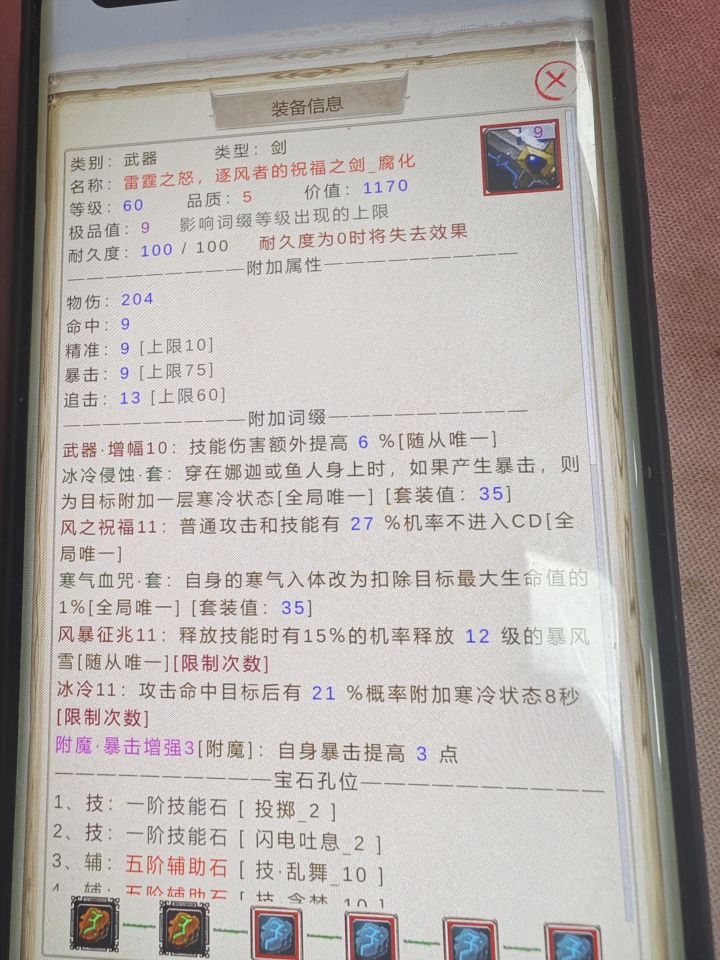 装备信息
类别：武器 类型：剑
9
名称：雷霆之怒，逐风者的祝福之剑_腐化
等级：60 品质：5 价值：1170
极品值：9 影响词缀等级出现的上限
耐久度：100 / 100 耐久度为0时将失去效果
附加属性
物伤：204
命中：9
精准：9 [上限10]
暴击：9 [上限75]
追击：13 [上限60]
附加词缀
武器·增幅10：技能伤害额外提高 6 %[随从唯一]
冰冷侵蚀·套：穿在娜迦或鱼人身上时，如果产生暴击，则
为目标附加一层寒冷状态[全局唯一] [套装值：35]
风之祝福11：普通攻击和技能有 27 %机率不进入CD[全
局唯一]
寒气血咒·套：自身的寒气入体改为扣除目标最大生命值的
1%[全局唯一] [套装值：35]
风暴征兆11：释放技能时有15%的机率释放 12 级的暴风
雪[随从唯一][限制次数]
冰冷11：攻击命中目标后有 21 %概率附加寒冷状态8秒
[限制次数]
附魔·暴击增强3[附魔]：自身暴击提高 3 点
宝石孔位
1、技：一阶技能石 [ 投掷_2 ]
2、技：一阶技能石 [ 闪电吐息_2 ]
3、辅：五阶辅助石 [ 技·乱舞_10 ]
4、辅：五阶辅助石 [ 技·贪婪_10 ]